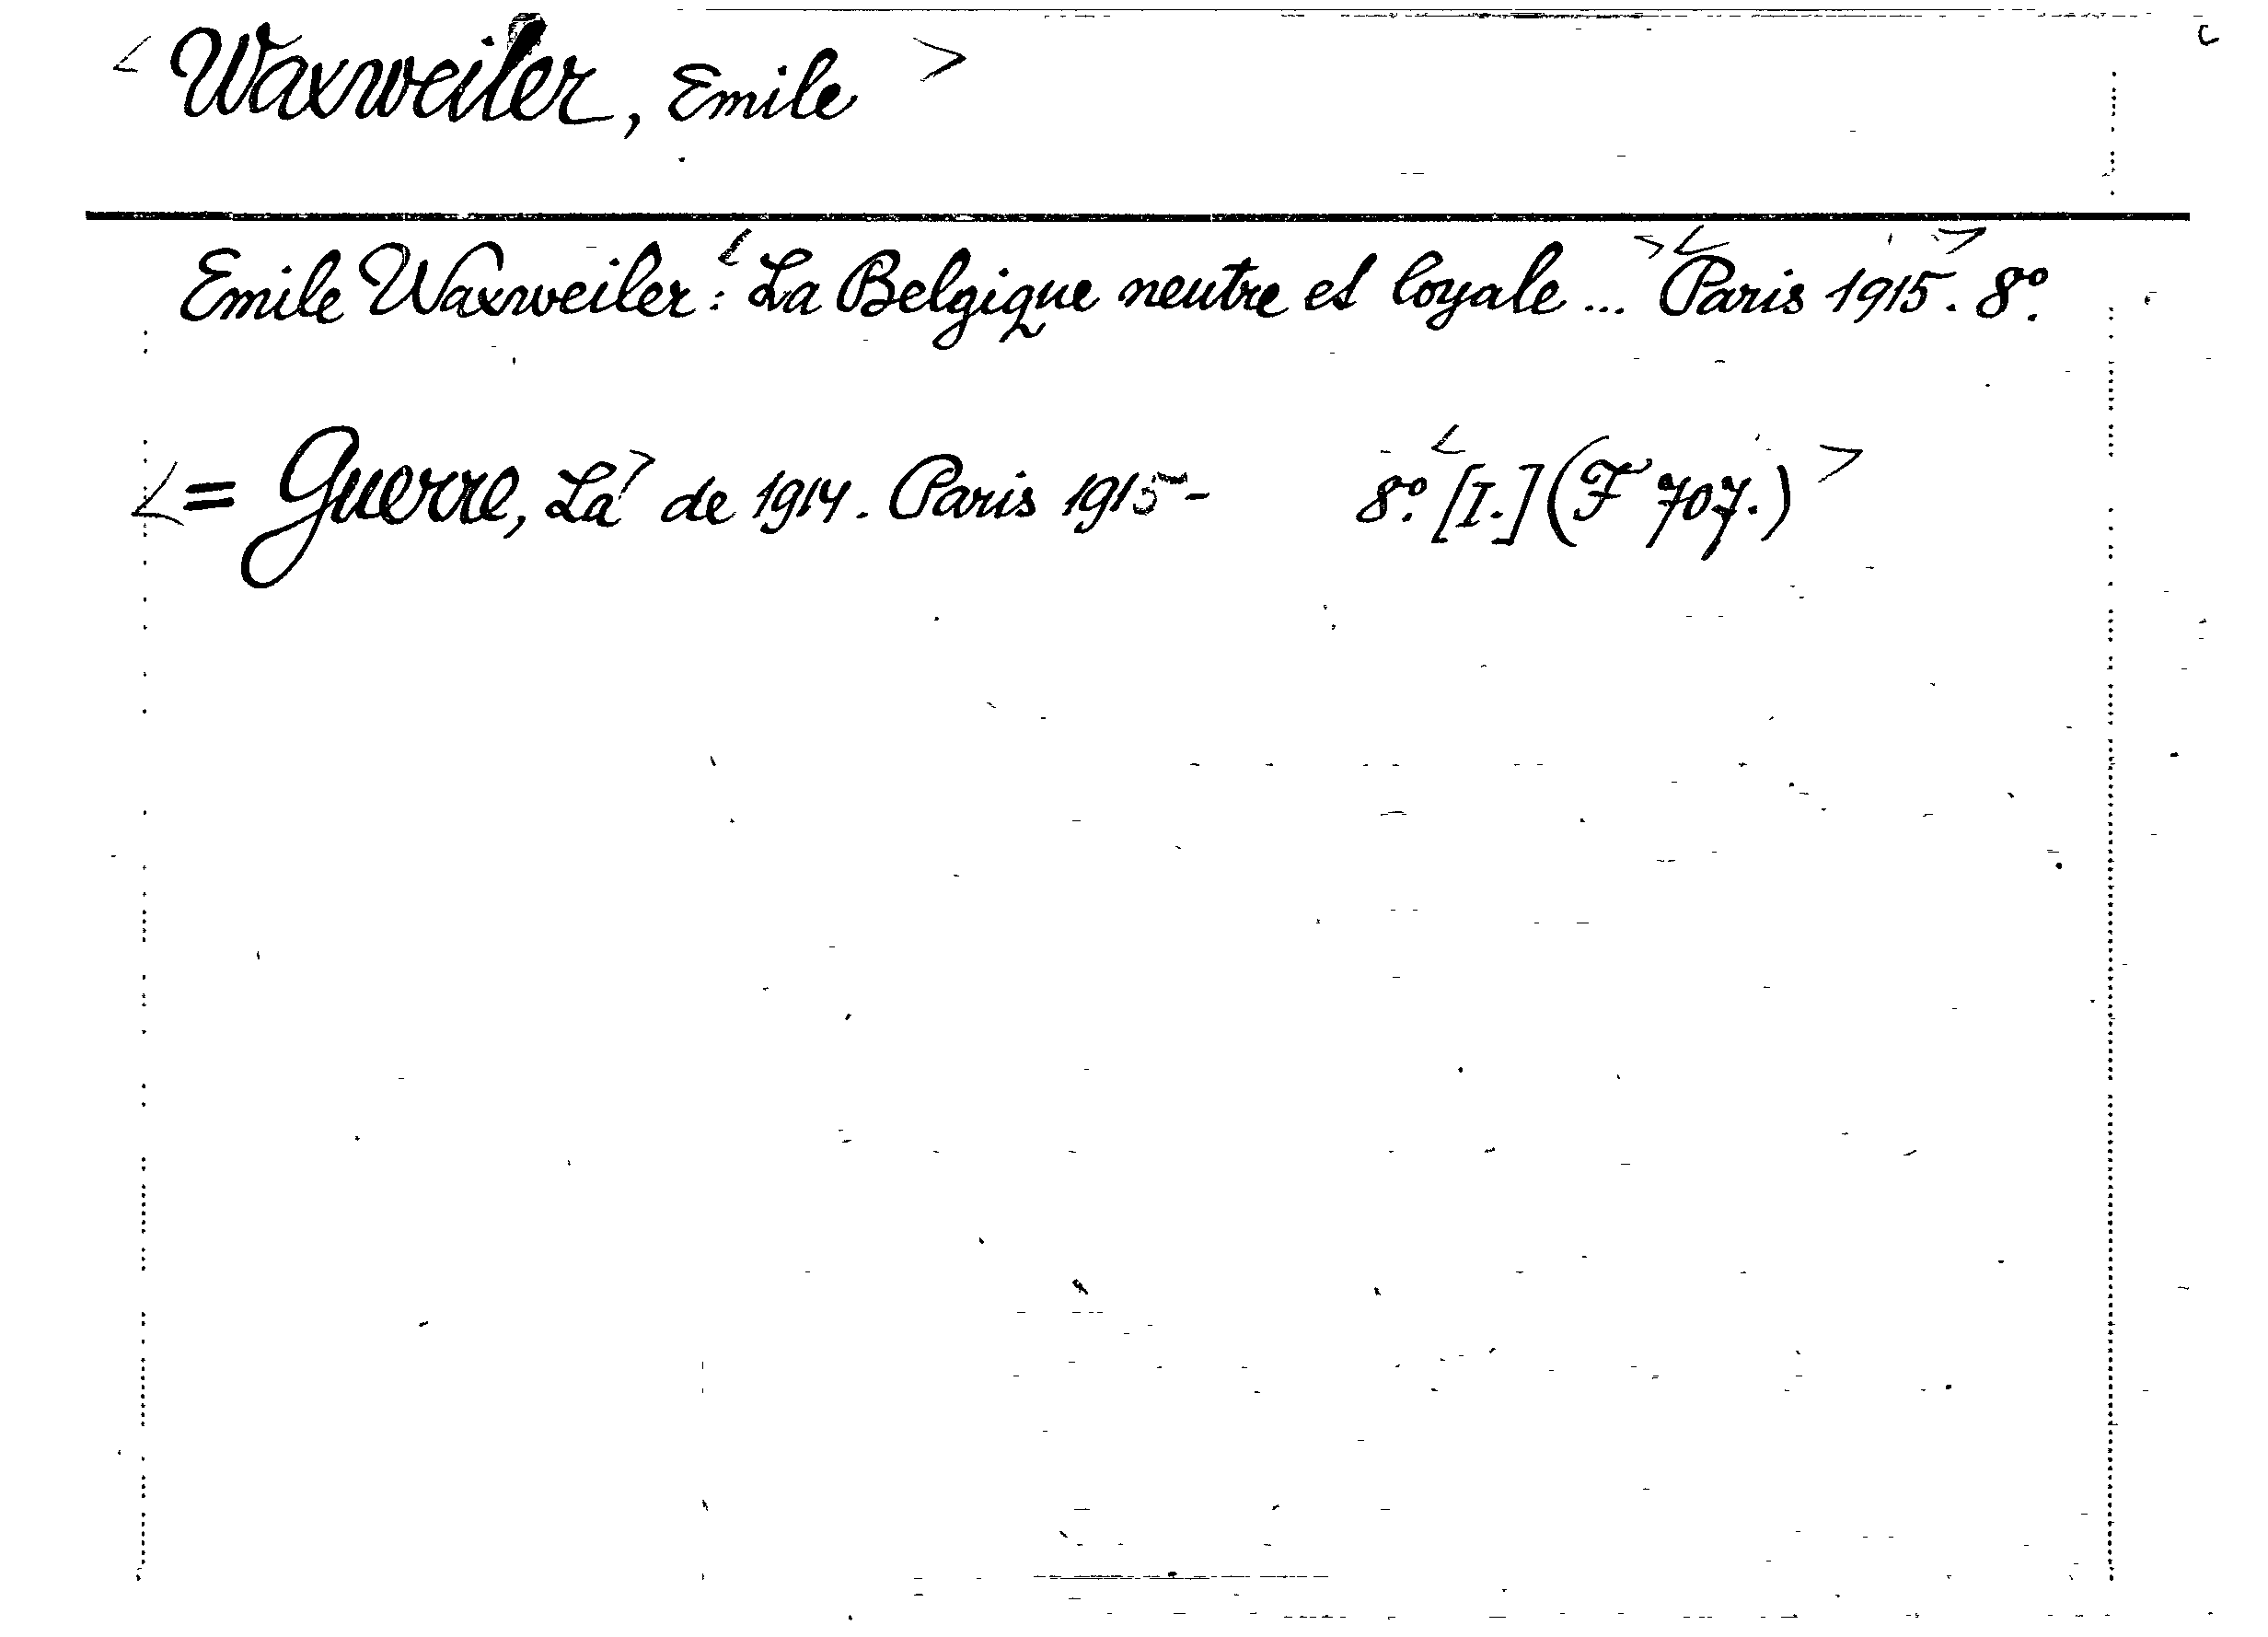 < Waxweiler, Emile >
Emile Waxweiler: <La Belgique neutre et loyale ... > <Paris 1915>. 8º.
<= Guerre, La> de 1914. Paris 1915- 8º. <[I.] (F 707.)>